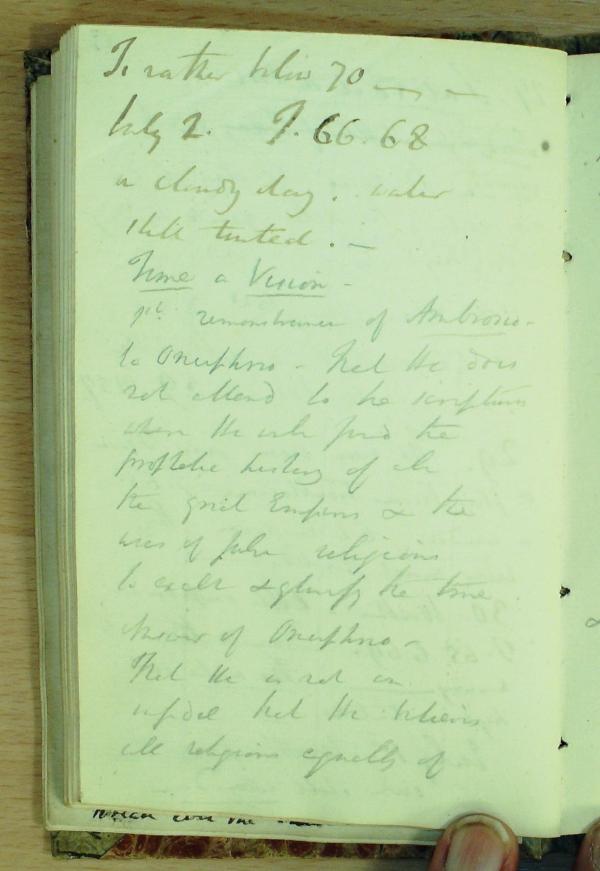 T. rather below 70 — —
July 2. T. 66. 68
a cloudy day. water
still tinted. —
Time a Vision -
remonstrance of Ambrosio -
to Onuphrio - that He does
not attend to the scriptures
where He will find the
prophetic history of all
the great Empires & the
uses of false religions
to exalt & glorify the true
of Onuphrio -
That He is not an
infidel that He believes
all religions equally of